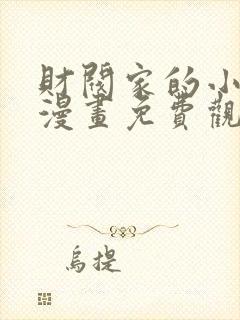 財閥家的小
漫畫免費觀
烏提